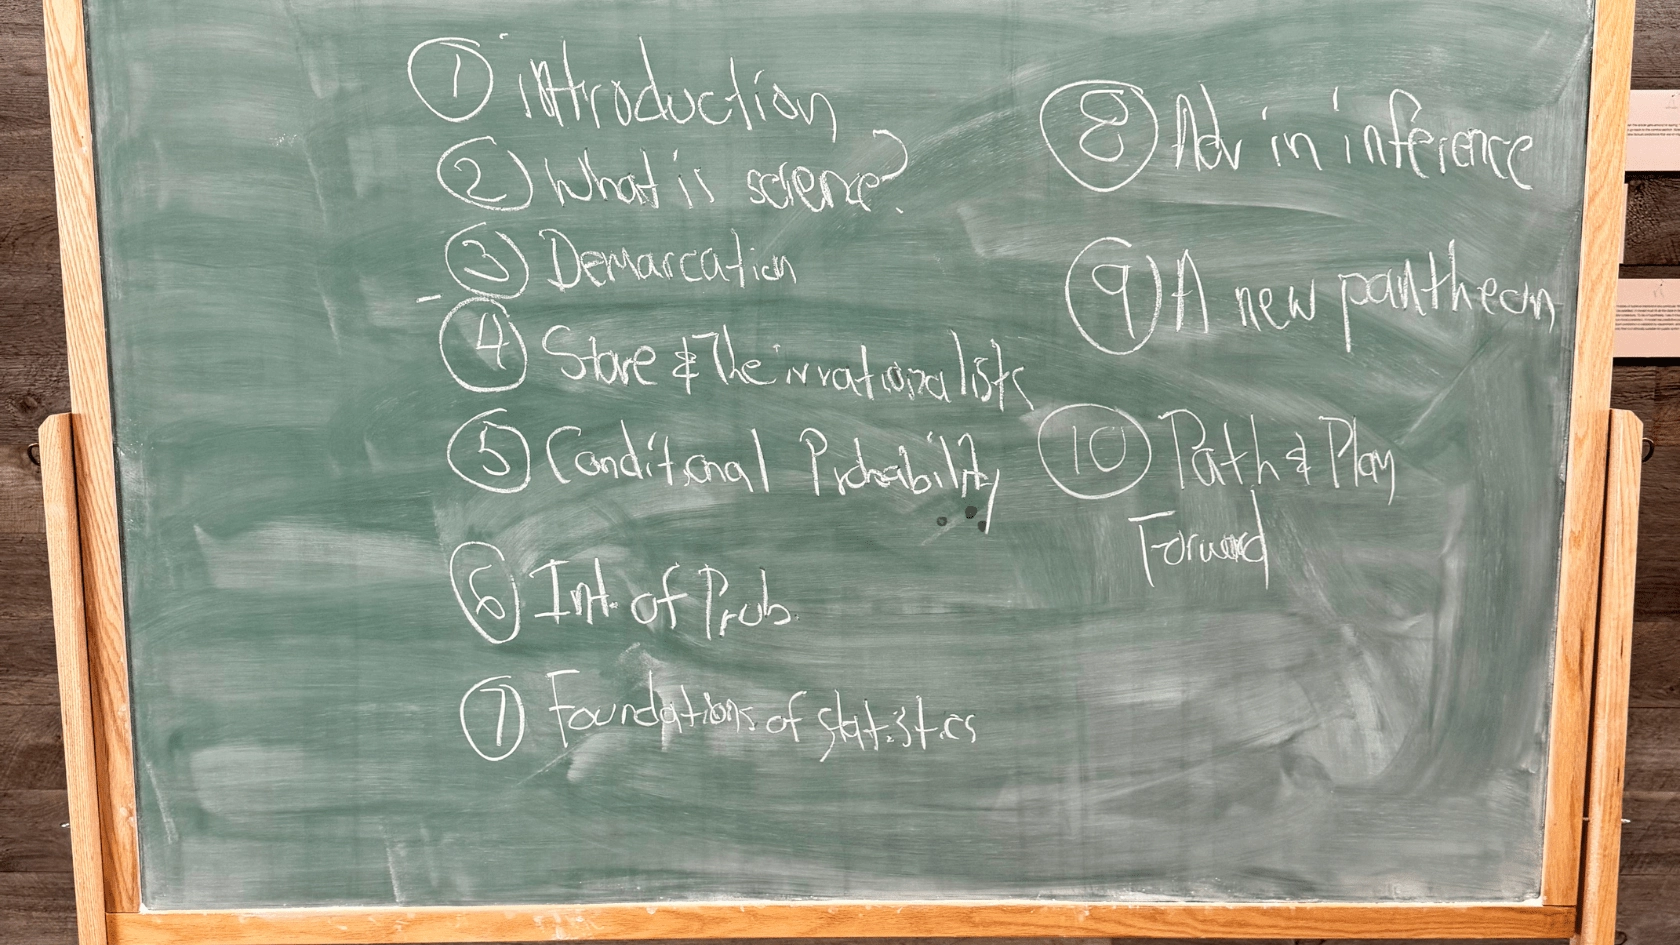 1 introduction
2 What is science?
3 Demarcation
4 Stove & The irrationalists
5 Conditional Probability
6 Int. of Prob.
7 Foundations of statistics
8 Adv in inference
9 A new pantheon
10 Path & Play
Forward